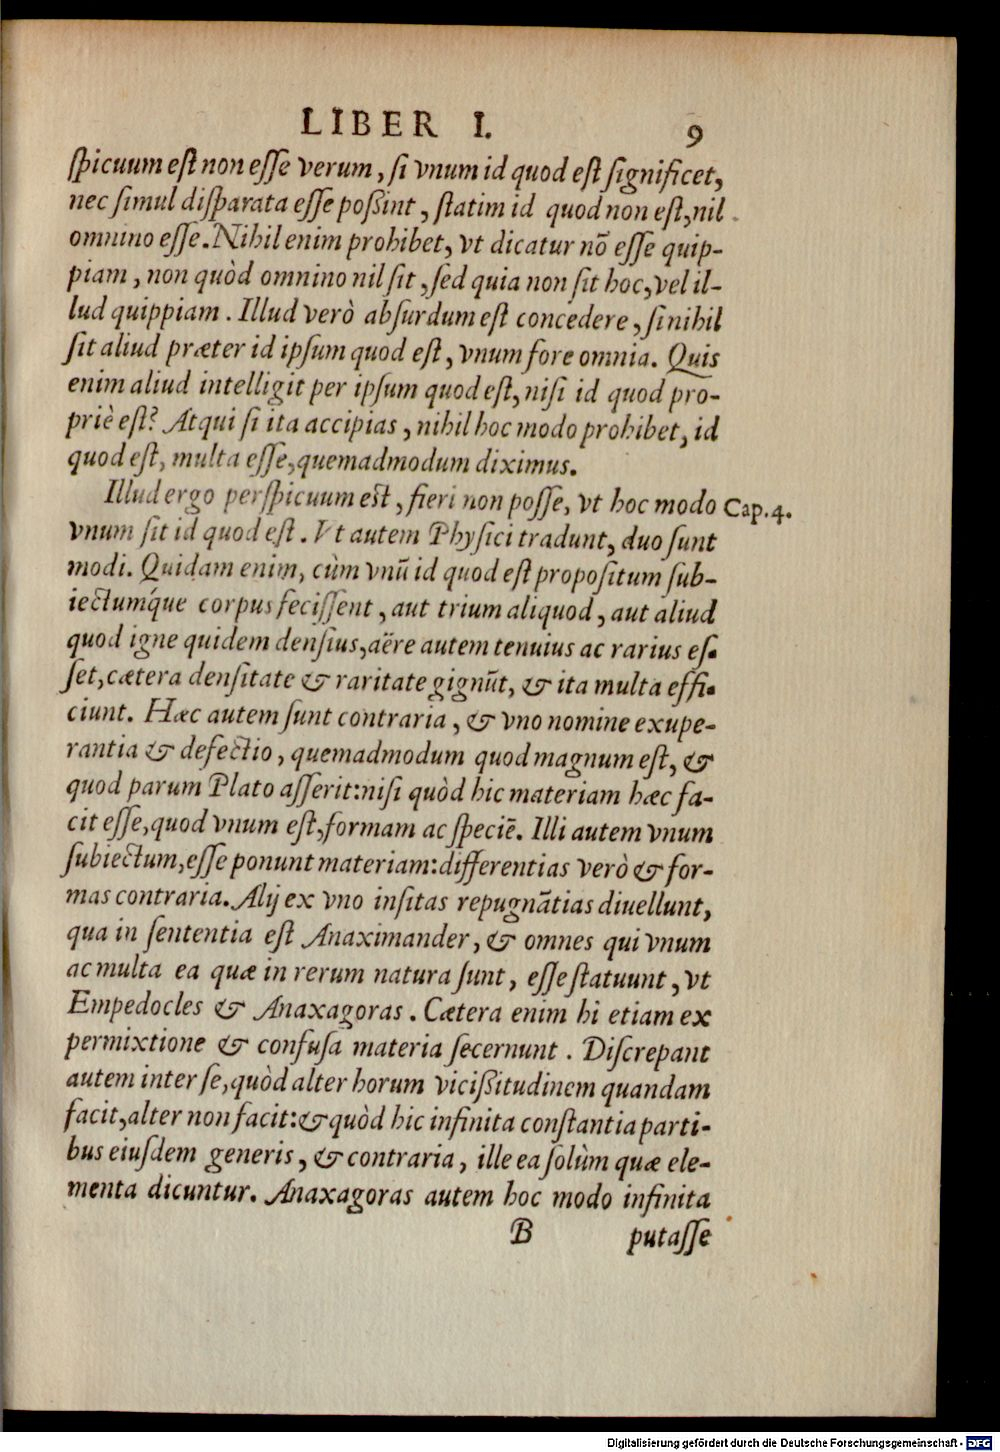 LIBER I. 9
ſpicuum eſt non eſſe verum, ſi vnum id quod eſt ſignificet,
nec ſimul diſparata eſſe poßint, ſtatim id quod non eſt, nil
omnino eſſe. Nihil enim prohibet, vt dicatur nõ eſſe quip-
piam, non quòd omnino nil ſit, ſed quia non ſit hoc, vel il-
lud quippiam. Illud verò abſurdum eſt concedere, ſi nihil
ſit aliud præter id ipſum quod eſt, vnum fore omnia. Quis
enim aliud intelligit per ipſum quod eſt, niſi id quod pro-
priè eſt? Atqui ſi ita accipias, nihil hoc modo prohibet, id
quod eſt, multa eſſe, quemadmodum diximus.
Illud ergo perſpicuum est, fieri non poſſe, vt hoc modo Cap. 4.
vnum ſit id quod eſt. Vt autem Phyſici tradunt, duo ſunt
modi. Quidam enim, cùm vnũ id quod eſt propoſitum ſub-
iectumq́ue corpus feciſſent, aut trium aliquod, aut aliud
quod igne quidem denſius, aëre autem tenuius ac rarius eſ-
ſet, cætera denſitate & raritate gignũt, & ita multa effi-
ciunt. Hæc autem ſunt contraria, & vno nomine exupe-
rantia & defectio, quemadmodum quod magnum eſt, &
quod parum Plato aſſerit: niſi quòd hic materiam hæc fa-
cit eſſe, quod vnum eſt, formam ac ſpeciẽ. Illi autem vnum
ſubiectum, eſſe ponunt materiam: differentias verò & for-
mas contraria. Alij ex vno inſitas repugnãtias diuellunt,
qua in ſententia eſt Anaximander, & omnes qui vnum
ac multa ea quæ in rerum natura ſunt, eſſe ſtatuunt, vt
Empedocles & Anaxagoras. Cætera enim hi etiam ex
permixtione & confuſa materia ſecernunt. Diſcrepant
autem inter ſe, quòd alter horum vicißitudinem quandam
facit, alter non facit: & quòd hic infinita conſtantia parti-
bus eiuſdem generis, & contraria, ille ea ſolùm quæ ele-
menta dicuntur. Anaxagoras autem hoc modo infinita
B putaſſe
Digitalisierung gefördert durch die Deutsche Forschungsgemeinschaft - DFG